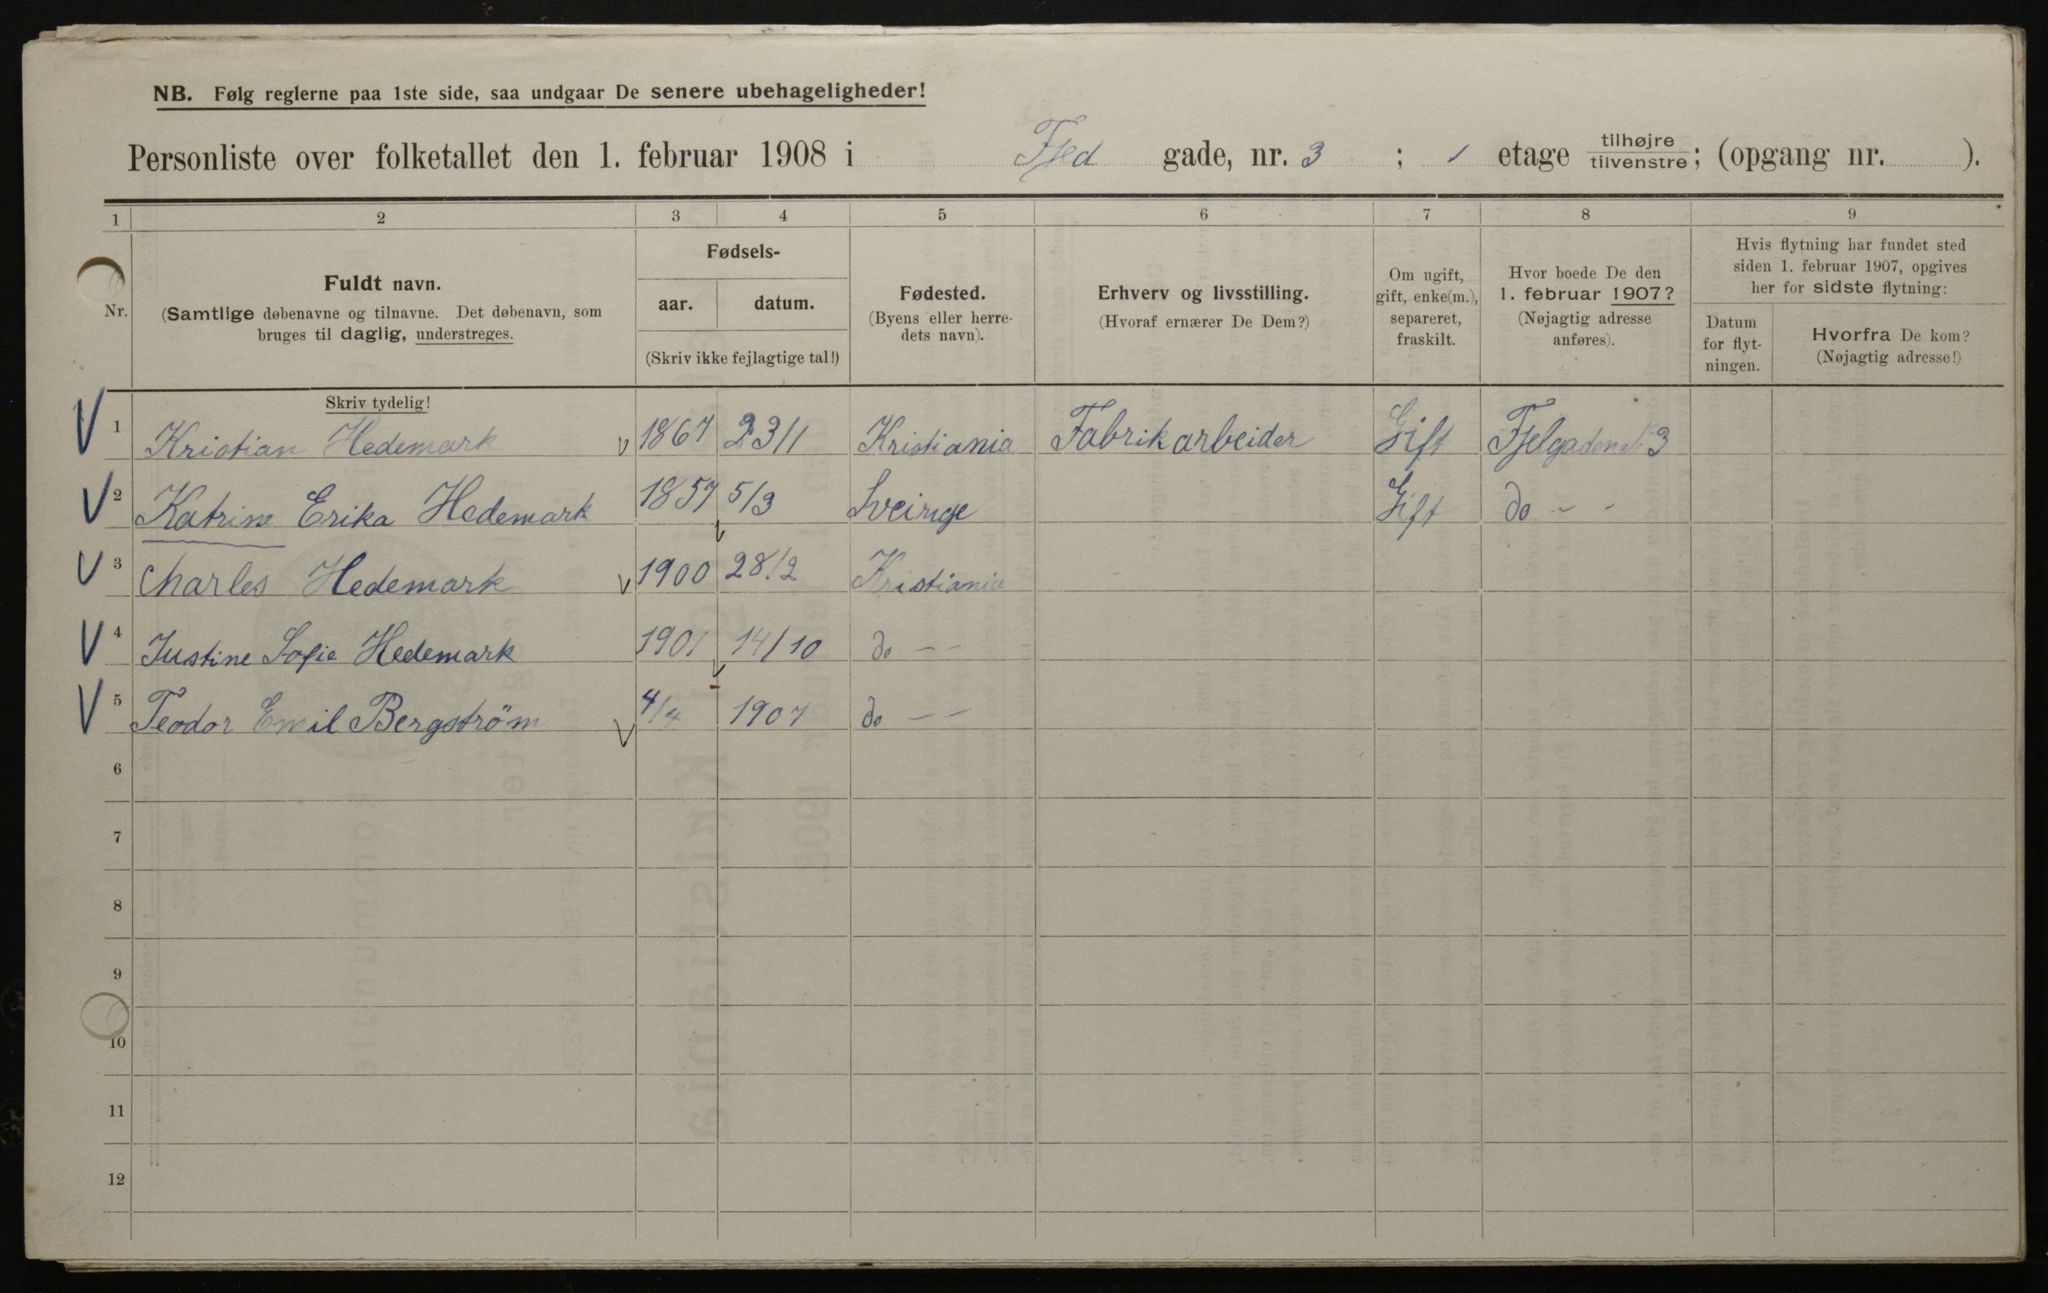 NB. Følg reglerne paa 1ste side, saa undgaar De senere ubehageligheder!
Personliste over folketallet den 1. februar 1908 i Fjed gade, nr. 3 ; 1 etage tilhøjre tilvenstre; (opgang nr. ).
1 2 3 4 5 6 7 8 9
Nr.
Fuldt navn.
(Samtlige døbenavne og tilnavne. Det døbenavn, som
bruges til daglig, understreges.
Skriv tydelig!
Fødsels-
aar. datum.
(Skriv ikke fejlagtige tal!)
Fødested.
(Byens eller herre-
dets navn).
Erhverv og livsstilling.
(Hvoraf ernærer De Dem?)
Om ugift,
gift, enke(m.),
separeret,
fraskilt.
Hvor boede De den
1. februar 1907?
(Nøjagtig adresse
anføres).
Hvis flytning har fundet sted
siden 1. februar 1907, opgives
her for sidste flytning:
Datum
for flyt-
ningen.
Hvorfra De kom?
(Nøjagtig adresse!)
1 Kristian Hedemark 1867 23/1 Kristiania Fabrikarbeider Gift Fjelgaden 3
2 Katrine Erika Hedemark 1857 5/3 Sveirige Gift do - -
3 Charles Hedemark 1900 28/2 Kristiania
4 Justine Sofie Hedemark 1901 14/10 do - -
5 Teodor Emil Bergström 4/4 1907 do - -
6
7
8
9
10
11
12